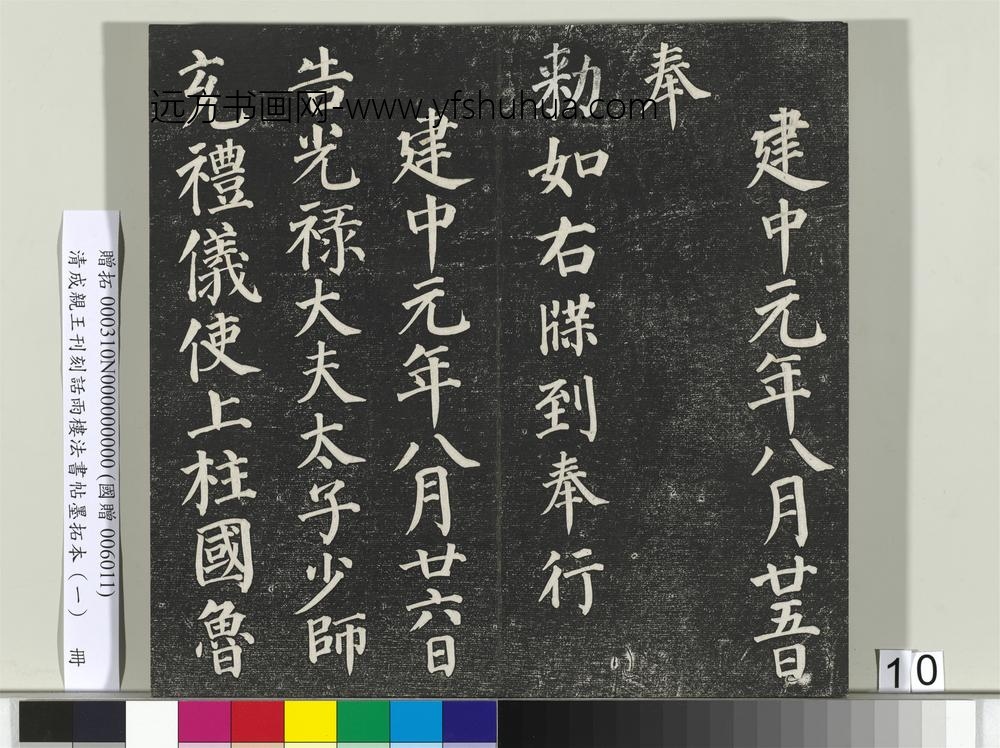 建中元年八月廿五日
奉
勅如右牒到奉行
建中元年八月廿六日
告光禄大夫太子少師
充禮儀使上柱國魯
远方书画网-www.yfshuhua.com
贈拓 000310N000000000 (國贈 006011)
清成親王刊刻話雨樓法書帖墨拓本(一) 冊
10